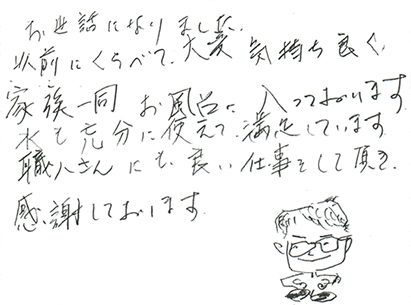 お世話になりました。
以前にくらべて、大変 気持ち良く、
家族一同 お風呂に 入っております
水も充分に使えて、満足しています
職人さんにも、良い仕事をして頂き、
感謝しております。